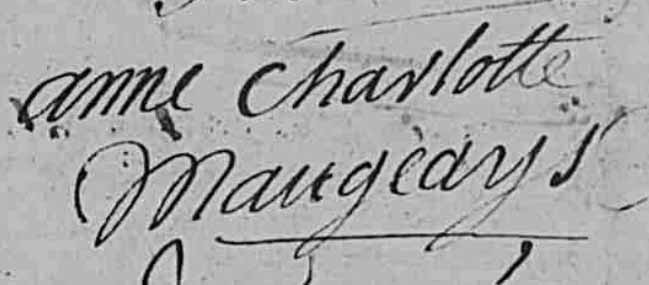 anne charlotte
Maugeays